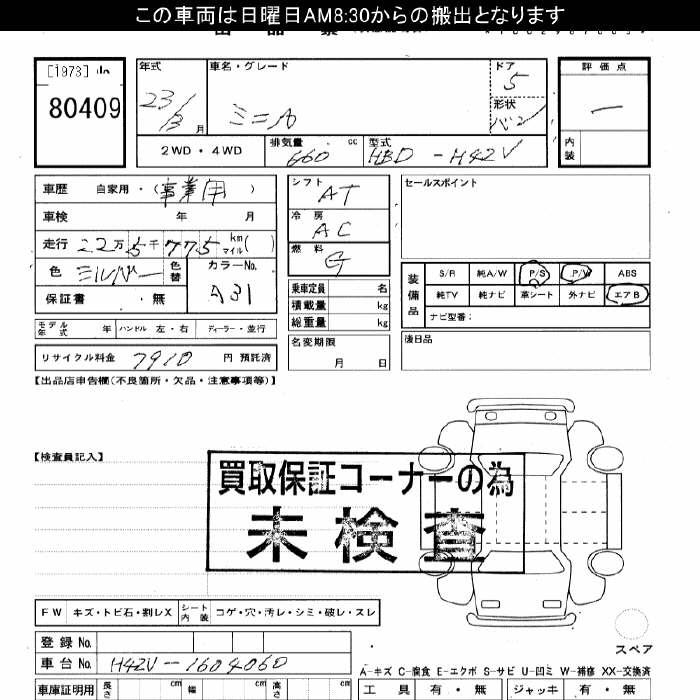 この車両は日曜日AM8:30からの搬出となります
[1973]
80409
年式 車名・グレード ドア 評価点
23/3月 ミニA 5 形状 バン ー
2WD・4WD 排気量 660 cc 型式 HBD-H42V 内装
車歴 自家用・(事業用) シフト AT セールスポイント
車検 年 月 冷房 AC
走行 22万5千775 km マイル( ) 燃料 G
色 シルバー 色替 カラーNo. A31
保証書 ・無 乗車定員 名
積載量 kg
総重量 kg
装備品 S/R 純A/W P/S P/W ABS
純TV 純ナビ 革シート 外ナビ エアB
ナビ型番:
モデル年式 年 ハンドル 左・右 ディーラー・並行 名変期限 月 日 後日品
リサイクル料金 7910 円 預託済
【出品店申告欄(不良箇所・欠品・注意事項等)】
【検査員記入】
買取保証コーナーの為
未検査
FW キズ・トビ石・割レX シート内装 コゲ・穴・汚レ・シミ・破レ・スレ
登録No.
車台No. H42V-1604060
スペア
A-キズ C-腐食 E-エクボ S-サビ U-凹ミ W-補修 XX-交換済
車庫証明用 長さ cm 幅 cm 高さ cm 工具 有・無 ジャッキ 有・無